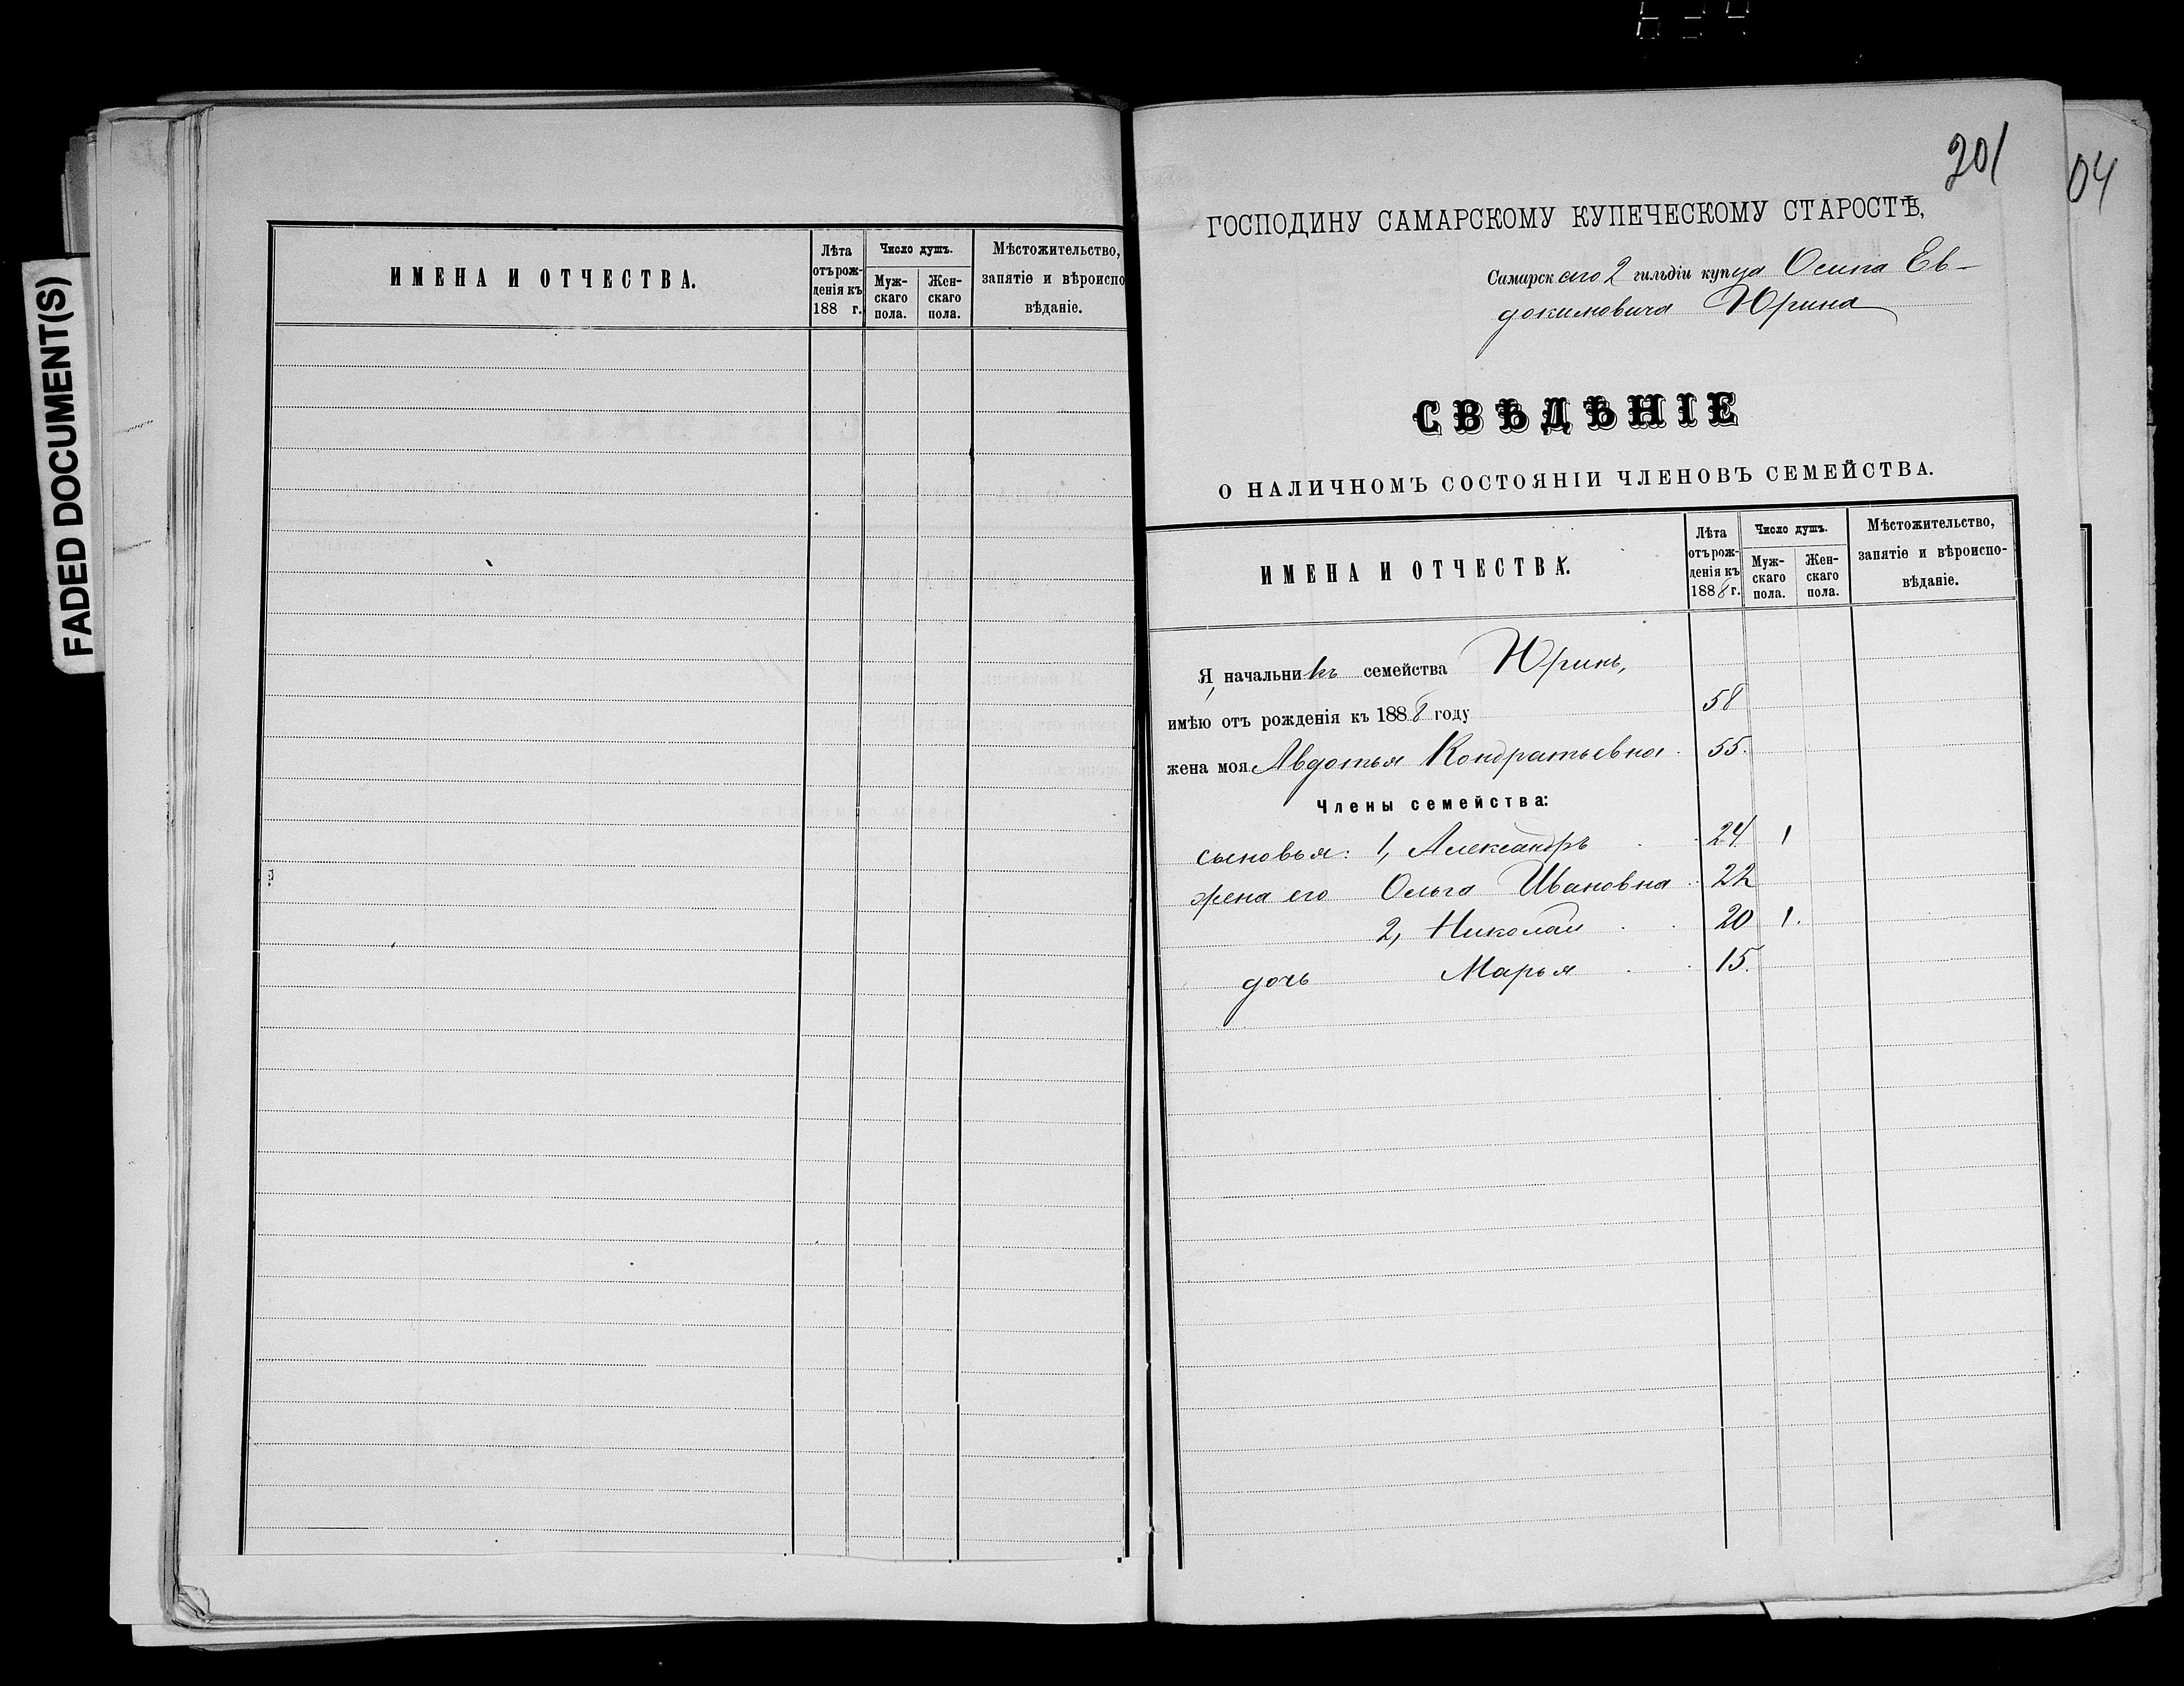 FADED DOCUMENT(S)
ИМЕНА И ОТЧЕСТВА.
Лѣта
отъ рож-
денія къ
188 г.
Число душъ.
Муж-
скаго
пола.
Жен-
скаго
пола.
Мѣстожительство,
занятіе и вѣроиспо
вѣданіе.
201
04
ГОСПОДИНУ САМАРСКОМУ КУПЕЧЕСКОМУ СТАРОСТѢ,
Самарскаго 2 гильдіи купца Осипа Ев-
докимовича Юрина
СВѢДѢНІЕ
О НАЛИЧНОМЪ СОСТОЯНІИ ЧЛЕНОВЪ СЕМЕЙСТВА.
ИМЕНА И ОТЧЕСТВА.
Лѣта
отъ рож-
денія къ
1888 г.
Число душъ.
Муж-
скаго
пола.
Жен-
скаго
пола.
Мѣстожительство,
занятіе и вѣроиспо-
вѣданіе.
Я, начальникъ семейства Юринъ,
имѣю отъ рожденія къ 1888 году 58
жена моя Авдотья Кондратьевна 55.
Члены семейства:
сыновья: 1, Александръ 24. 1
жена его Ольга Ивановна 22
2, Николай 20 1.
дочь Марья 15.